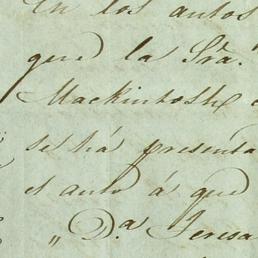 En los autos
que la Sra.
Mackintosh
se há presenta
el auto á que
„ Da. Teresa